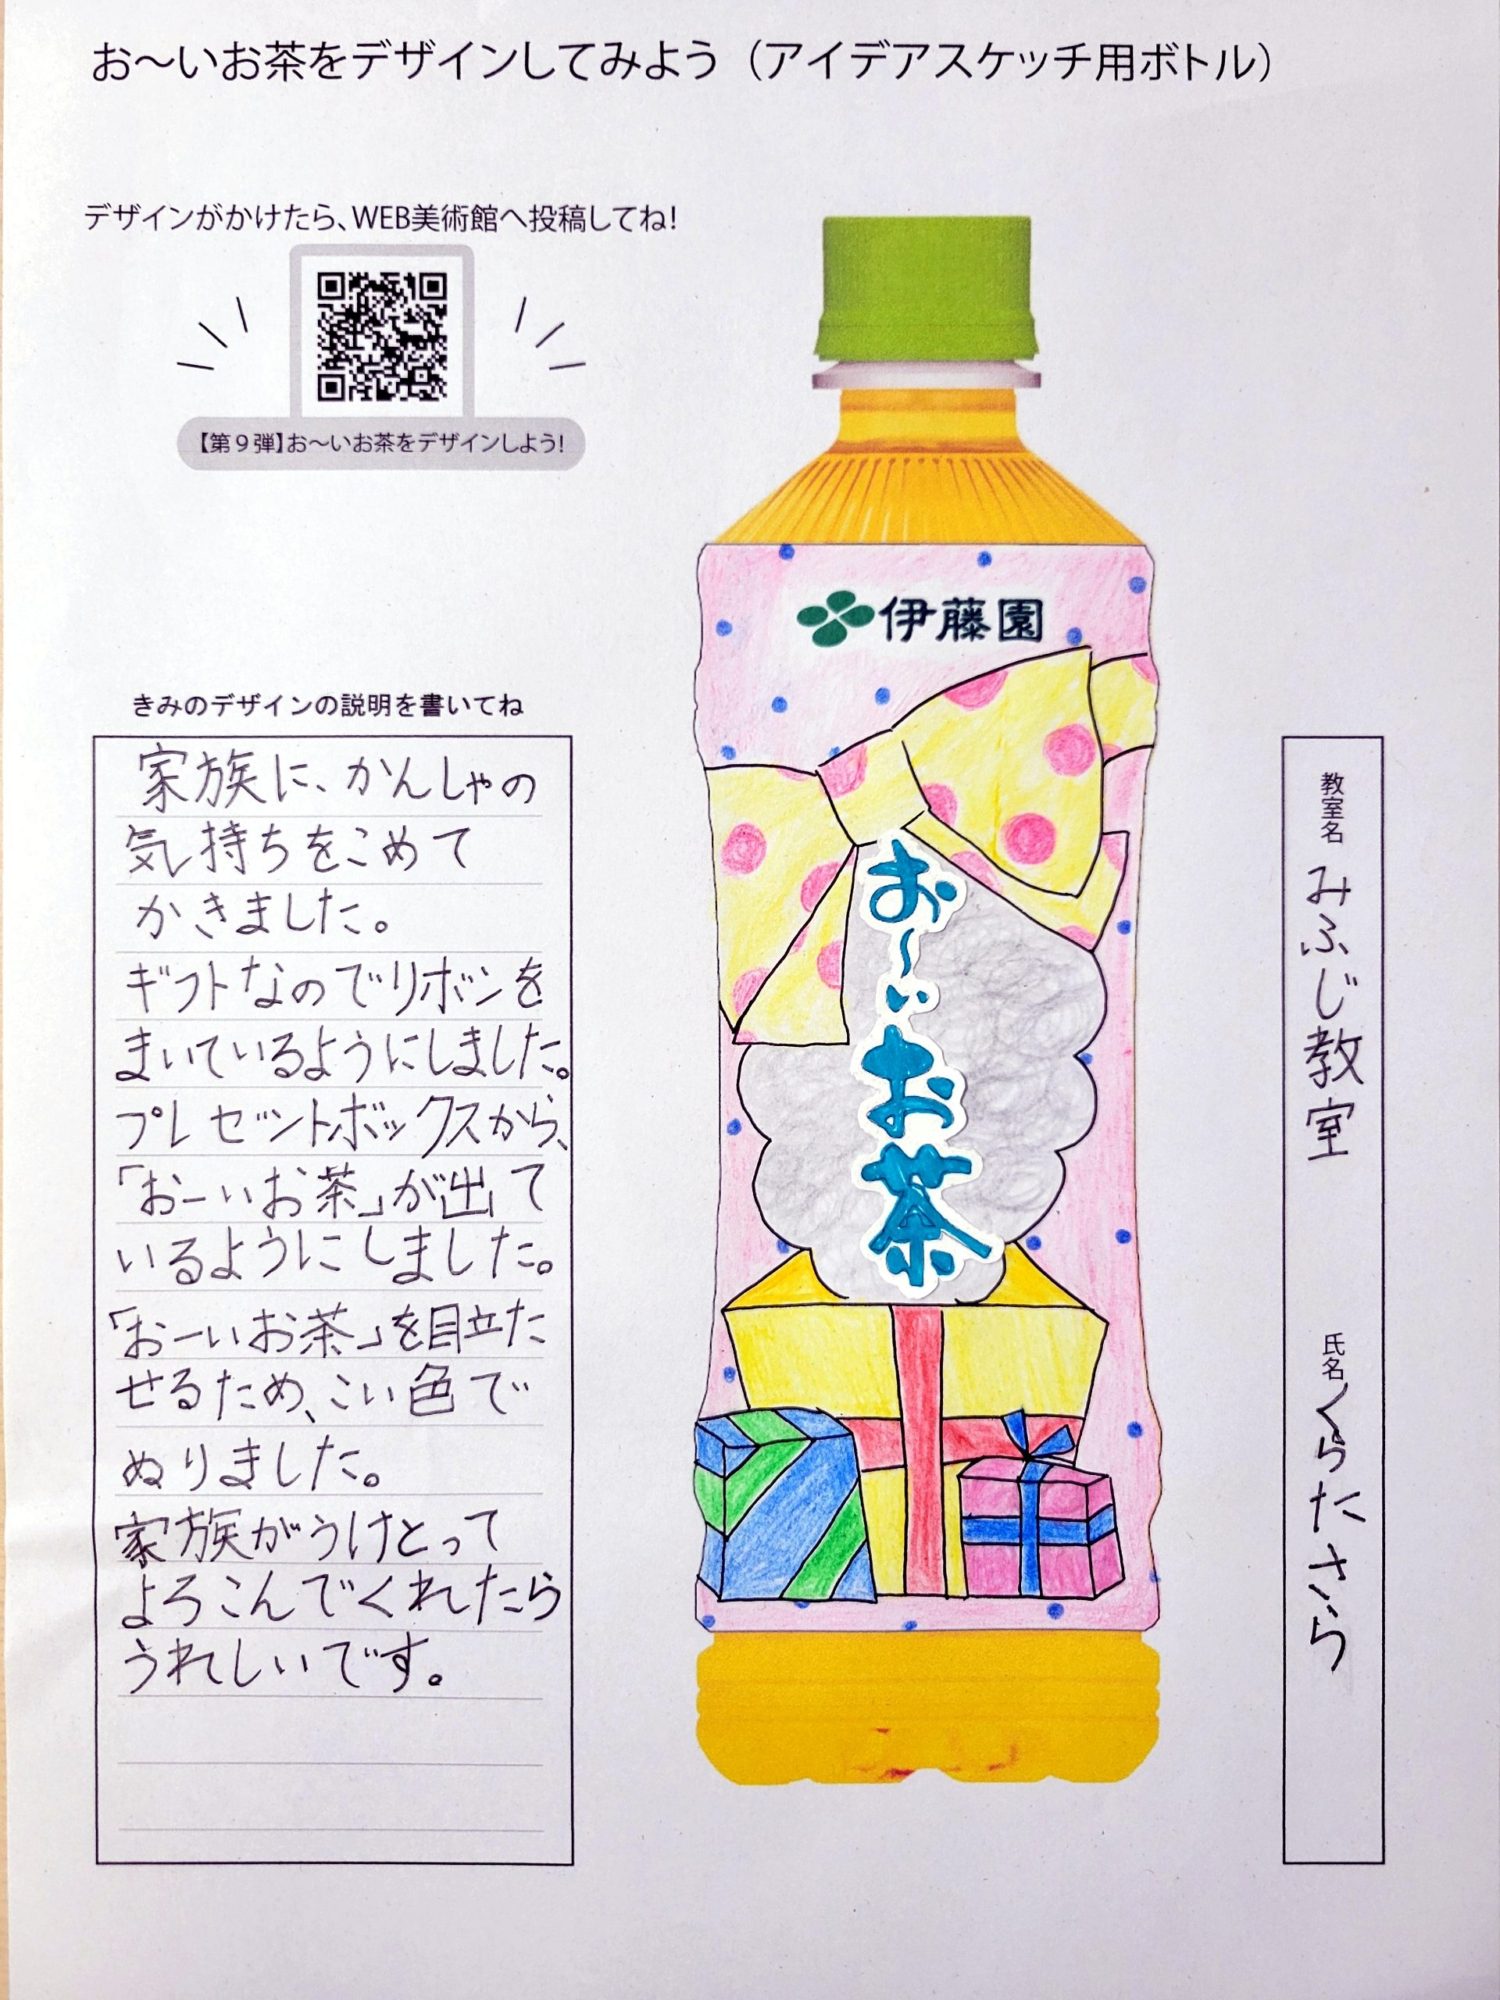 お～いお茶をデザインしてみよう（アイデアスケッチ用ボトル）
デザインがかけたら、WEB美術館へ投稿してね!
【第９弾】お～いお茶をデザインしよう!
きみのデザインの説明を書いてね
家族に、かんしゃの
気持ちをこめて
かきました。
ギフトなのでリボンを
まいているようにしました。
プレゼントボックスから、
「おーいお茶」が出て
いるようにしました。
「おーいお茶」を目立た
せるため、こい色で
ぬりました。
家族がうけとって
よろこんでくれたら
うれしいです。
伊藤園
お～いお茶
教室名 みふじ教室
氏名 くらたさら